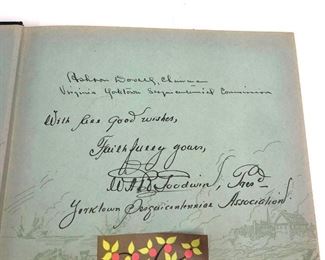 Chairman
Virginia Yorktown Sesquicentennial Commission
With best good wishes,
Faithfully yours,
W.A.R. Goodwin, Pres.
Yorktown Sesquicentennial Association